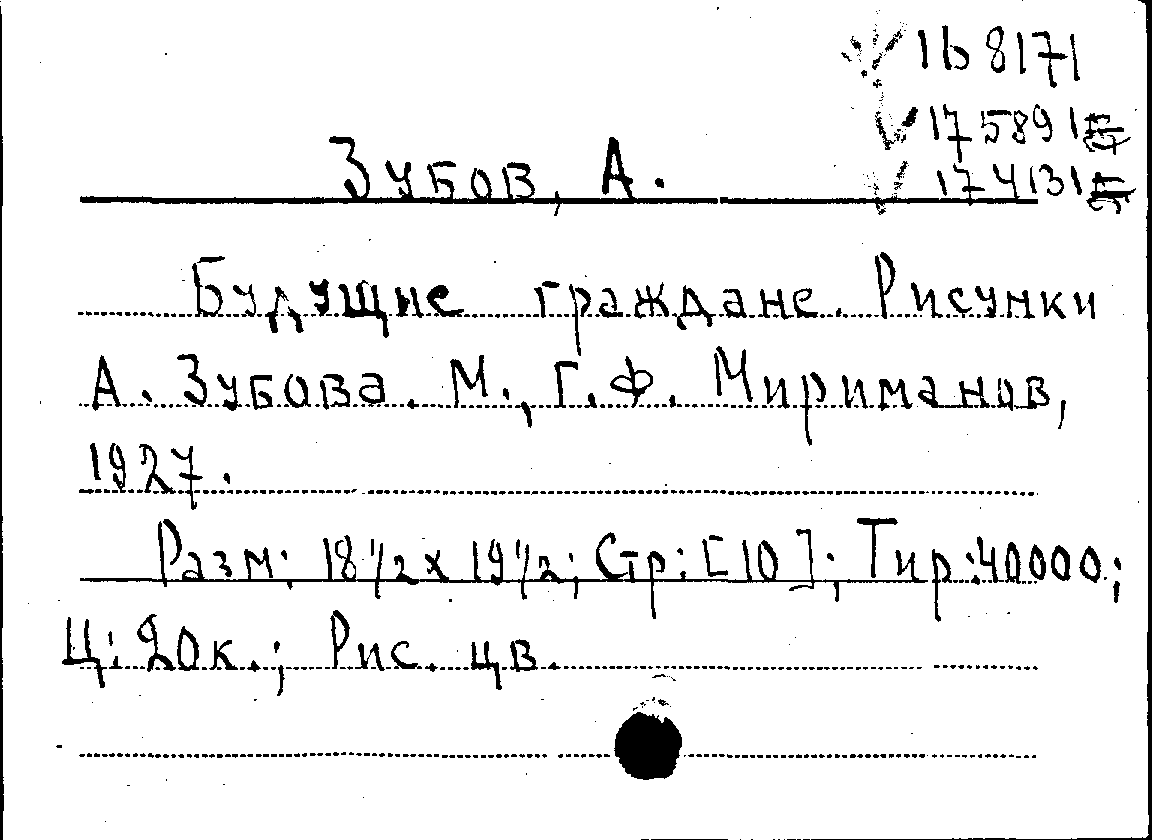 168171
175891
174131
Зубов, А.
Будущие граждане. Рисунки
А. Зубова. М., Г.Ф. Мириманов,
1927.
Разм: 18 1/2 x 19 1/2; Стр: [10]; Тир: 40000;
Ц: 20к.; Рис. цв.